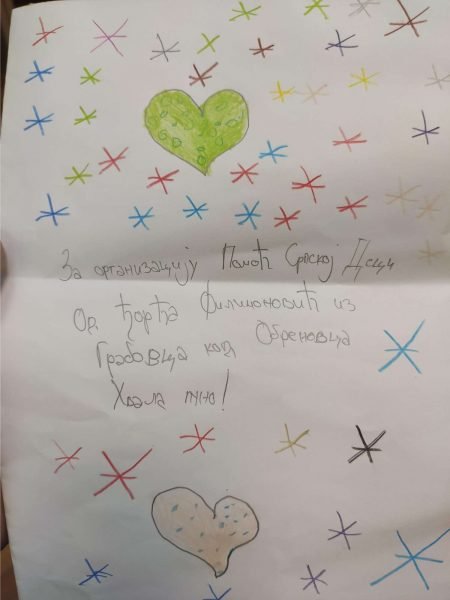 За организацију Помоћ Српској Деци
Од Ђорђа Филимоновић из
Грабовца код Обреновца
Хвала пуно!